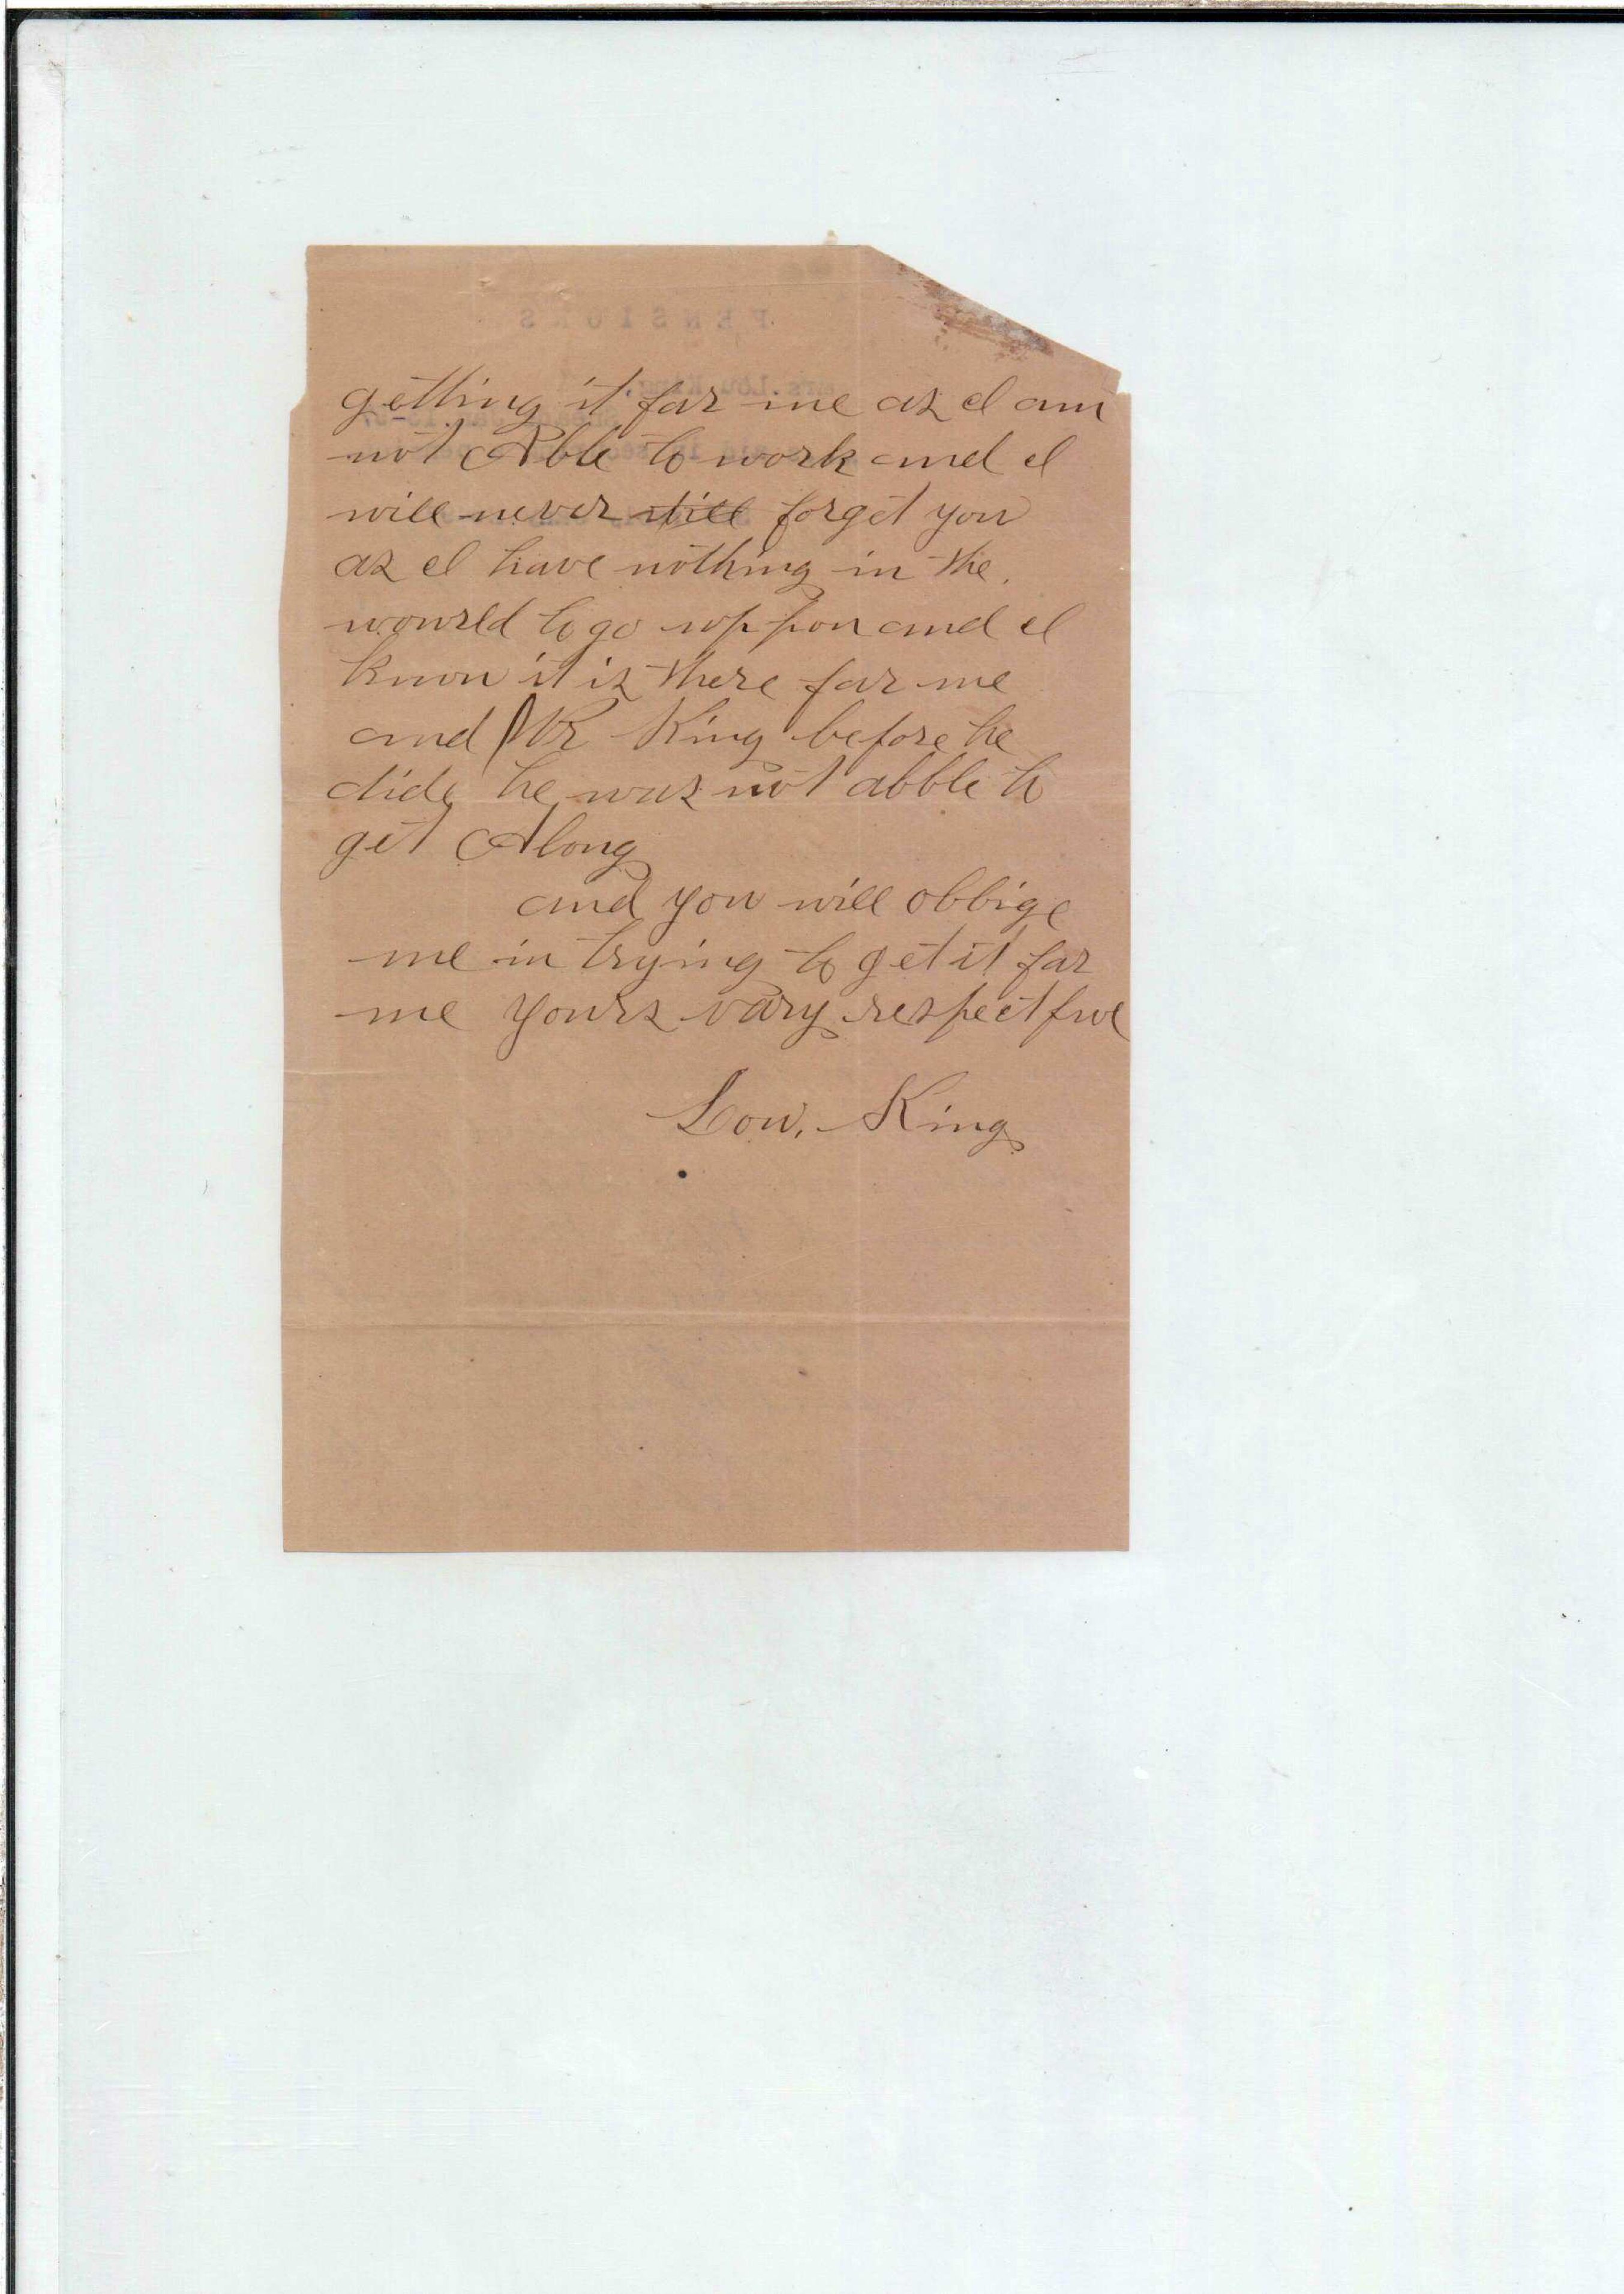 getting it far me as I am
not Able to work and I
will never still forget you
as I have nothing in the.
wourld to go uppon and I
know it is there far me
and Mr King before he
dide he was not abble to
get Along
and you will obbige
me in trying to get it far
me yours vary respectful
Lou. King
PENSIONS
Mrs. Lou King,